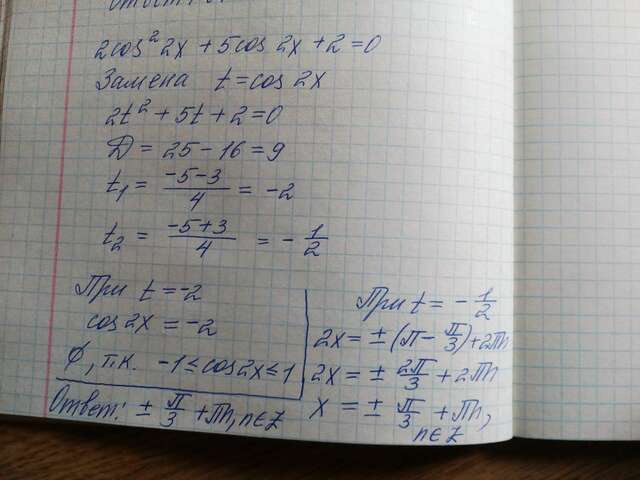 2cos² 2x + 5cos 2x + 2 = 0
Замена t = cos 2x
2t² + 5t + 2 = 0
Д = 25 - 16 = 9
t₁ = (-5-3)/4 = -2
t₂ = (-5+3)/4 = - 1/2
При t = -2
cos 2x = -2
∅, т.к. -1 ≤ cos2x ≤ 1
При t = - 1/2
2x = ± (π - π/3) + 2πn
2x = ± 2π/3 + 2πn
x = ± π/3 + πn,
n ∈ Z
Ответ: ± π/3 + πn, n ∈ Z